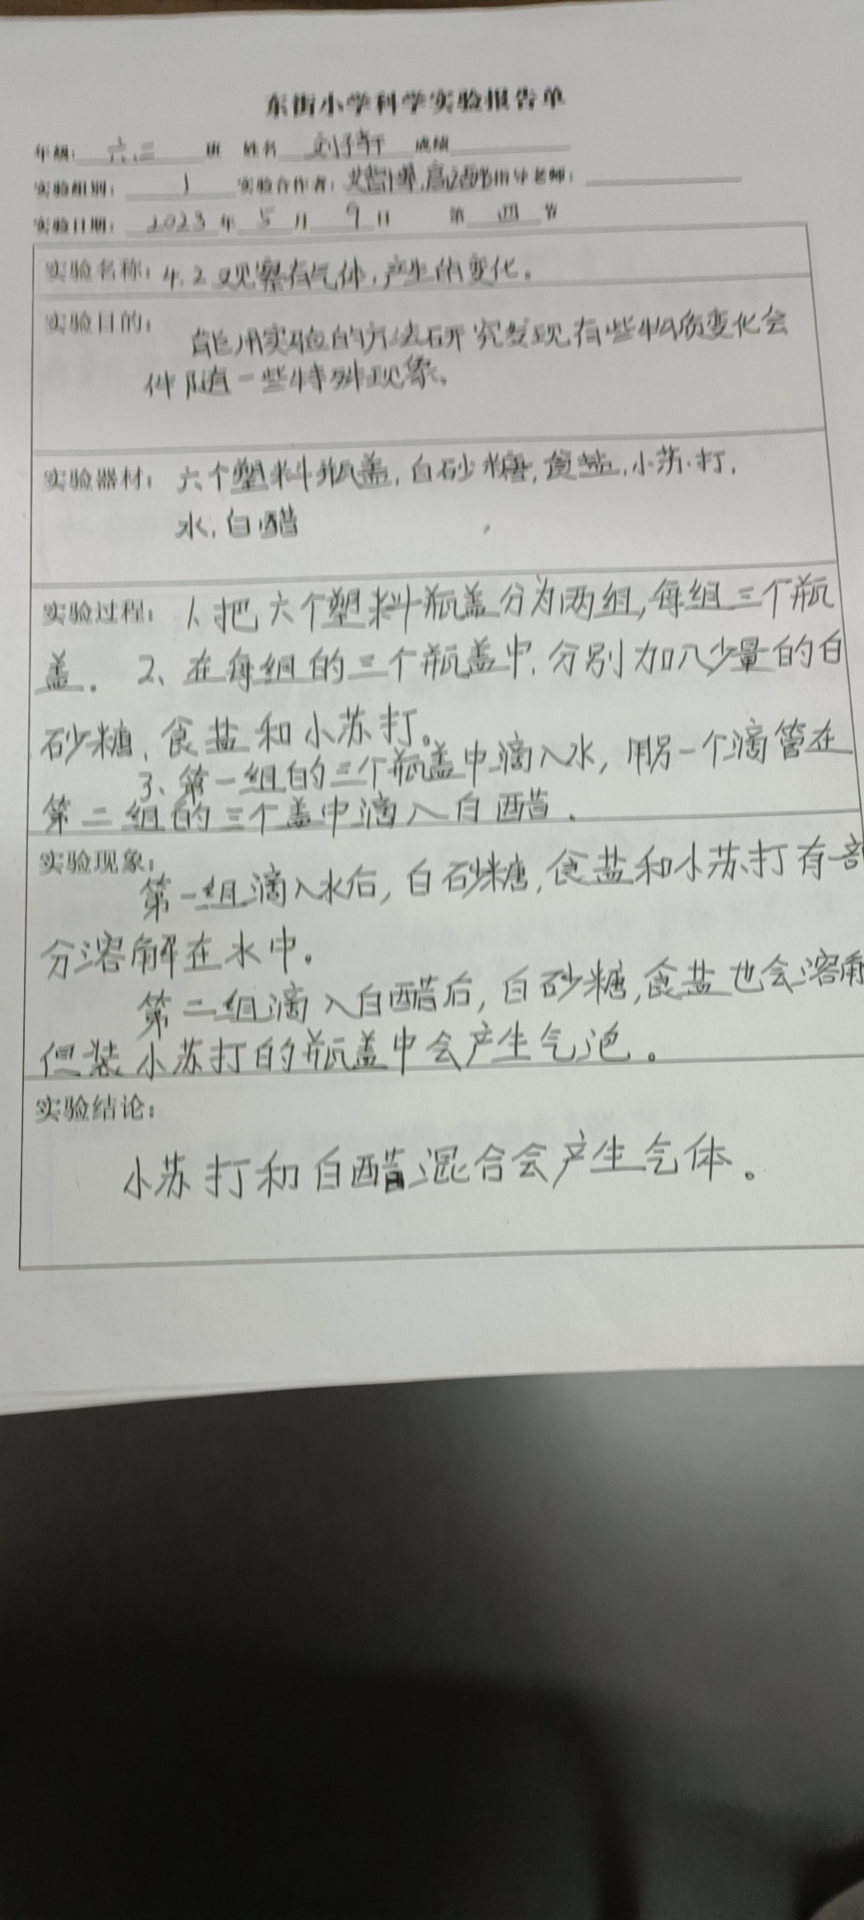 东街小学科学实验报告单
年级：六.三 班 姓名 刘 轩 成绩
实验组别：1 实验合作者： 指导老师：
实验日期：2023年5月9日 第四节
实验名称：4.2观察有气体,产生的变化。
实验目的：能用实验的方法研究发现有些物质变化会
伴随一些特殊现象。
实验器材：六个塑料瓶盖,白砂糖,食盐,小苏打,
水,白醋
实验过程：1、把六个塑料瓶盖分为两组,每组三个瓶
盖. 2、在每组的三个瓶盖中.分别加入少量的白
砂糖、食盐和小苏打。
3、第一组的三个瓶盖中滴入水,用另一个滴管在
第二组的三个盖中滴入白醋.
实验现象：
第一组滴入水后,白砂糖,食盐和小苏打有部
分溶解在水中。
第二组滴入白醋后,白砂糖,食盐也会溶解
但装小苏打的瓶盖中会产生气泡。
实验结论：
小苏打和白醋混合会产生气体。